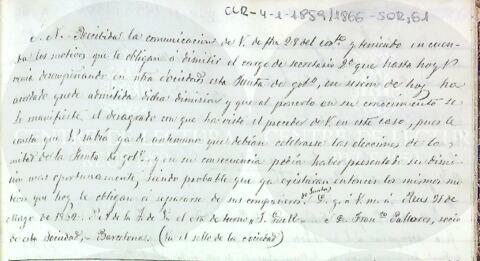 CLR-4-1-1859/1866-SOR,61
S. N. Recibida la comunicacion de V. de fha 28 del corte y teniendo en cuenta
los motivos que le obligan á dimitir el cargo de secretario 2º que hasta hoy V.
venia desempeñando en ntra Sociedad esta Junta de gobº, en sesion de hoy, ha
acordado quede admitida dicha dimision y que al ponerlo en su conocimiento se
le manifieste el desagrado con que ha visto el proceder de V. en este caso, pues le
consta que V. sabia ya de antemano que debian celebrarse las elecciones de la
mitad de la Junta de gobº. y en su consecuencia podia haber presentado su dimi-
sion mas oportunamente, siendo probable que ya existirian entonces los mismos mo-
tivos que hoy le obligan á separarse de sus compañeros de Junta. D. g. á V. m. a. Reus 31 de
Mayo de 1862. P. A. de la J. de G. el srio de turno J. Güell. = S. D. Franco Pallares, socio
de esta Sociedad, = Barcelona. (Hay el sello de la sociedad)